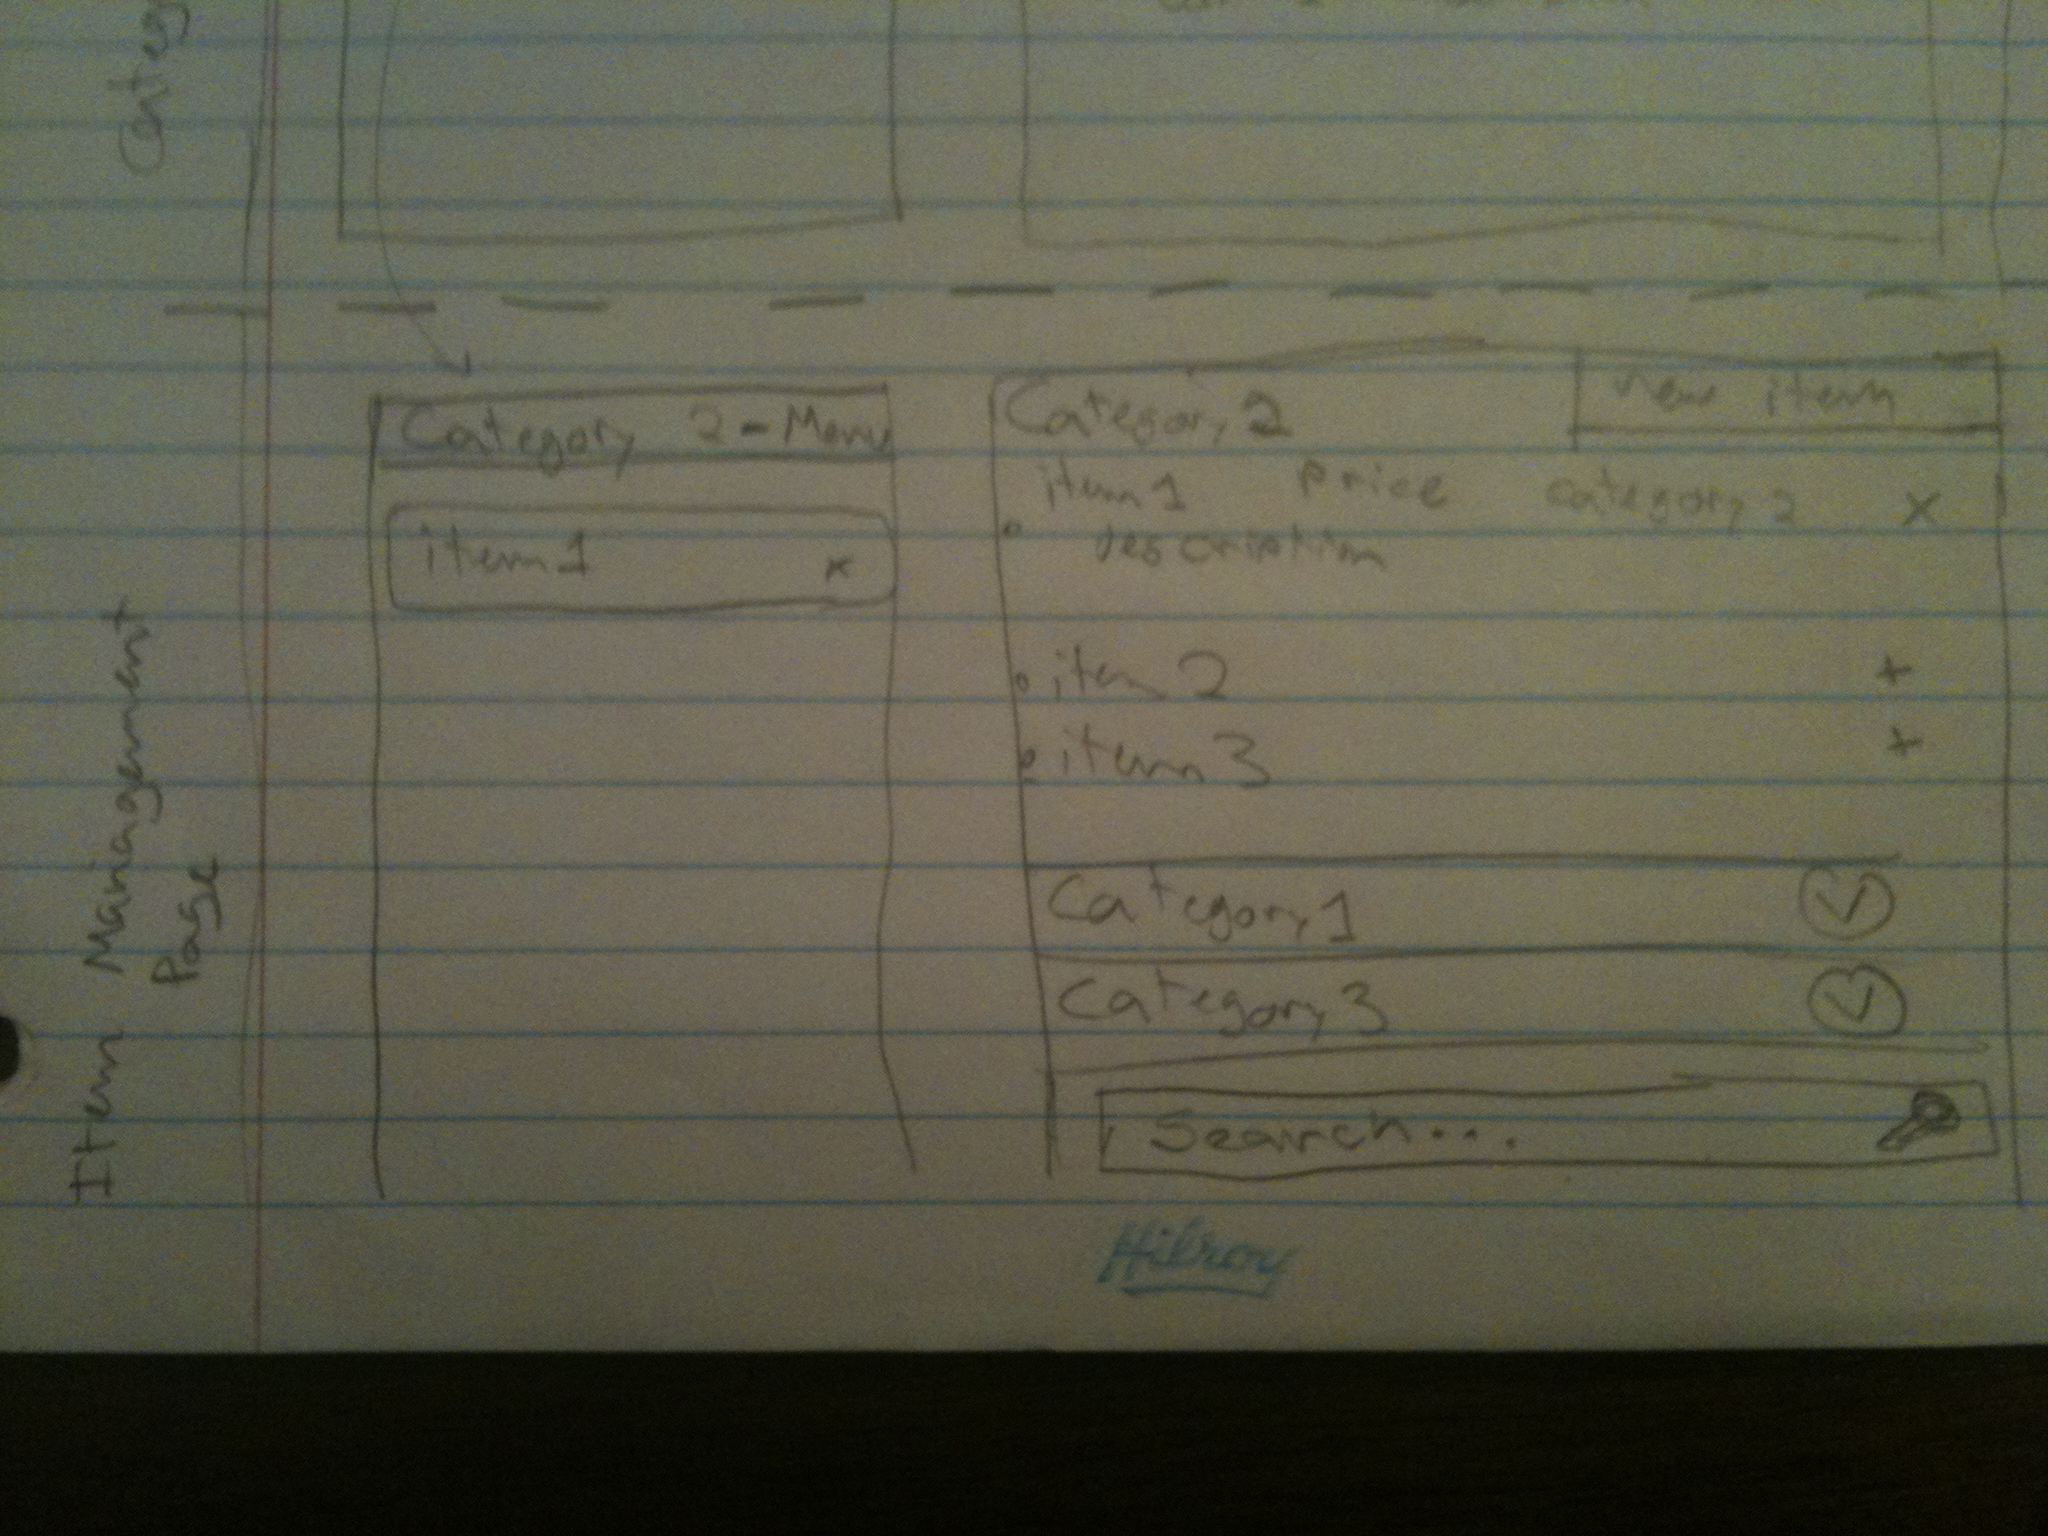 Categ
Item Management
Page
Category 2 - Menu
item1 x
Category 2
new item
item1 price category 2 x
description
item 2 +
item 3 +
Category 1
Category 3
Search...
Hilroy